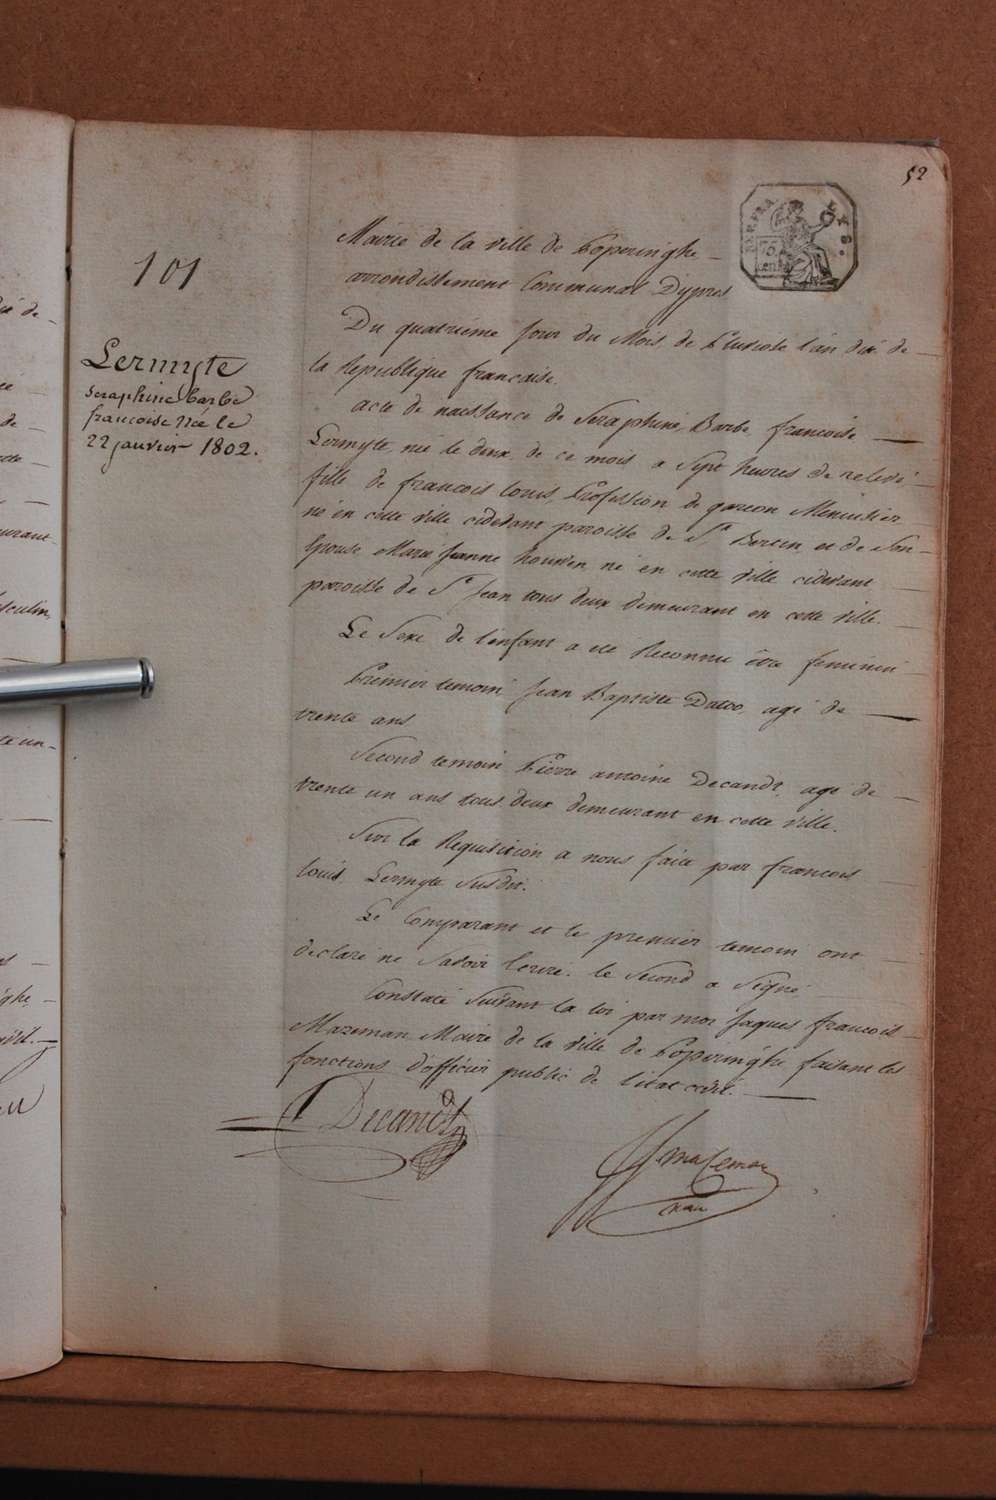 52
101
Lermyte
Seraphine barbe
francoise née le
22 janvier 1802.
75
cen
Mairie de la ville de Poperinghe
arrondissement Communal Dypres
Du quatrième jour du Mois de Pluviose l'an dix de
la Republique francaise.
acte de naissance de Seraphine Barbe francoise
Lermyte née le deux de ce mois a Sept heures de relevé
fille de francois louis Profession de garcon Menuisier
né en cette ville cidevant paroisse de St Bertin et de Son
Epouse Marie Jeanne né en cette ville cidevant
paroisse de St Jean tous deux demeurant en cette ville.
Le Sexe de l'enfant a été Reconnu être feminin
Premier temoin Jean Baptiste agé de
trente ans
Second temoin Pierre antoine Decandt, agé de
trente un ans tous deux demeurant en cette ville.
Sur la Requisition a nous faite par francois
louis Lermyte Susdit.
Le Comparant et le premier temoin ont
declaré ne Savoir ecrire. le Second a Signé
Constaté Suivant la loi par moi Jaques francois
Mazeman Maire de la ville de Poperinghe faisant les
fonctions d'officier public de l'etat civil.
P Decandt
Mazeman